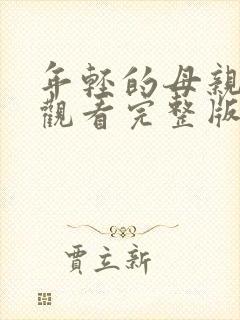 年輕的母親
觀看完整版
賈立新